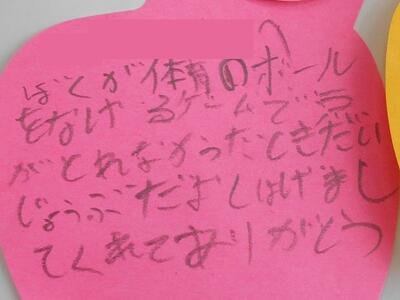 ぼくが体育のボール
をなげるゲームでラ
がとれなかったときだい
じょうぶだよとはげまし
てくれてありがとう